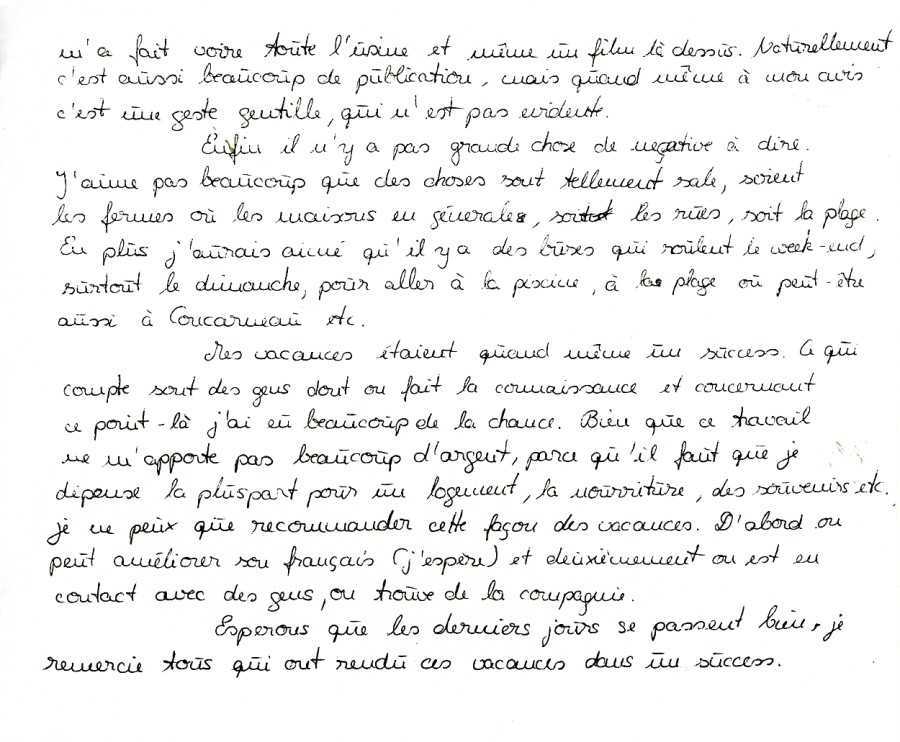 m'a fait voire toute l'usine et même un film là dessus. Naturellement
c'est aussi beaucoup de publication, mais quand même à mon avis
c'est une geste gentille, qui n'est pas evidente.
Enfin il n'y a pas grande chose de negative à dire.
J'aime pas beaucoup que des choses sont tellement sale, soient
les fermes où les maisons en génerales, les rues, soit la plage.
En plus j'aurais aimé qu'il y a des buses qui roulent le week-end,
surtout le dimanche, pour aller à la piscine, à la plage où peut-être
aussi à Concarneau etc.
Mes vacances étaient quand même un success. Ce qui
compte sont des gens dont on fait la connaissance et concernant
ce point-là j'ai eu beaucoup de la chance. Bien que ce travail
ne m'apporte pas beaucoup d'argent, parce qu'il faut que je
dépense la pluspart pour un logement, la nourriture, des souvenirs etc.
je ne peux que recommander cette façon des vacances. D'abord on
peut améliorer son français (j'espère) et deuxièmement on est en
contact avec des gens, on trouve de la compagnie.
Esperons que les derniers jours se passent bien, je
remercie tous qui ont rendu ces vacances dans un success.